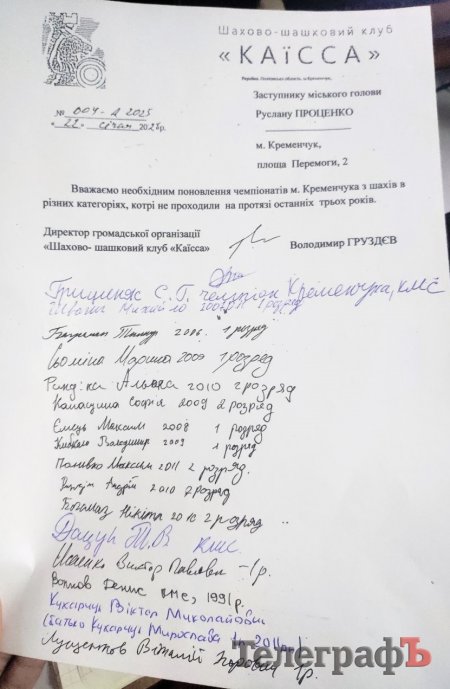 Шахово-шашковий клуб
« КАЇССА»
Україна, Полтавська область, м.Кременчук,
№ 004-Д 2025
« 22 » січня 2025р.
Заступнику міського голови
Руслану ПРОЦЕНКО
м. Кременчук,
площа Перемоги, 2
Вважаємо необхідним поновлення чемпіонатів м. Кременчука з шахів в
різних категоріях, котрі не проходили на протязі останніх трьох років.
Директор громадської організації
«Шахово- шашковий клуб «Каїсса»
Володимир ГРУЗДЄВ
Грищенко С.Г. чемпіон Кременчука, КМС
Михайло 1 розряд
2006. 1 розряд
Сьоміна Марина 2009 1 розряд
Альона 2010 2 розряд
Софія 2009 2 розряд
Ємець Максим 2008 1 розряд
Володимир 2009 1 розряд
Максим 2011 2 розряд.
Андрій 2010 2 розряд
Богомаз Нікіта 2010 2 розряд
Дацун Т.В кмс.
Віктор Павлович - 1 р.
Волков Денис КМС, 1991р.
Кухарчук Віктор Миколайович
(батько Кухарчук Мирослава
Віталій 1р.
ТелеграфЪ